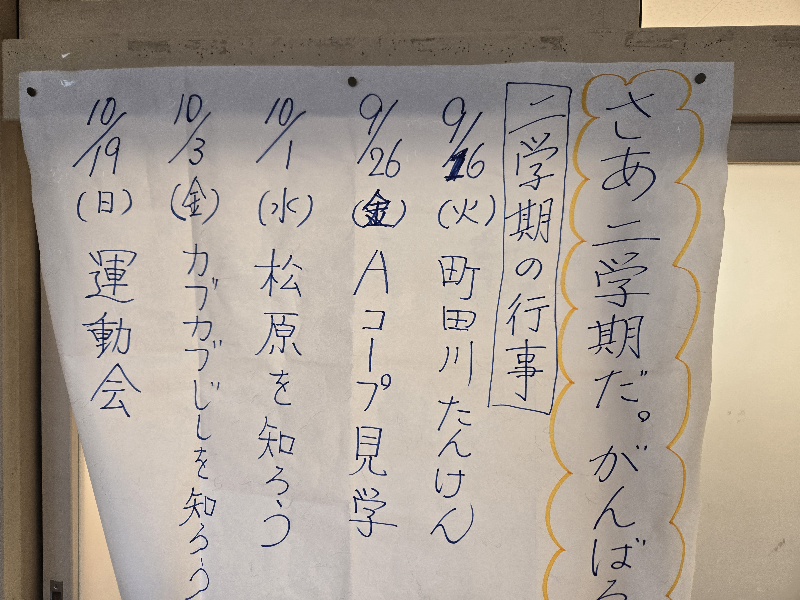 さあ二学期だ。がんばろ
二学期の行事
9/16(火)町田川たんけん
9/26(金)Aコープ見学
10/1(水)松原を知ろう
10/3(金)カブカブじしを知ろう
10/19(日)運動会